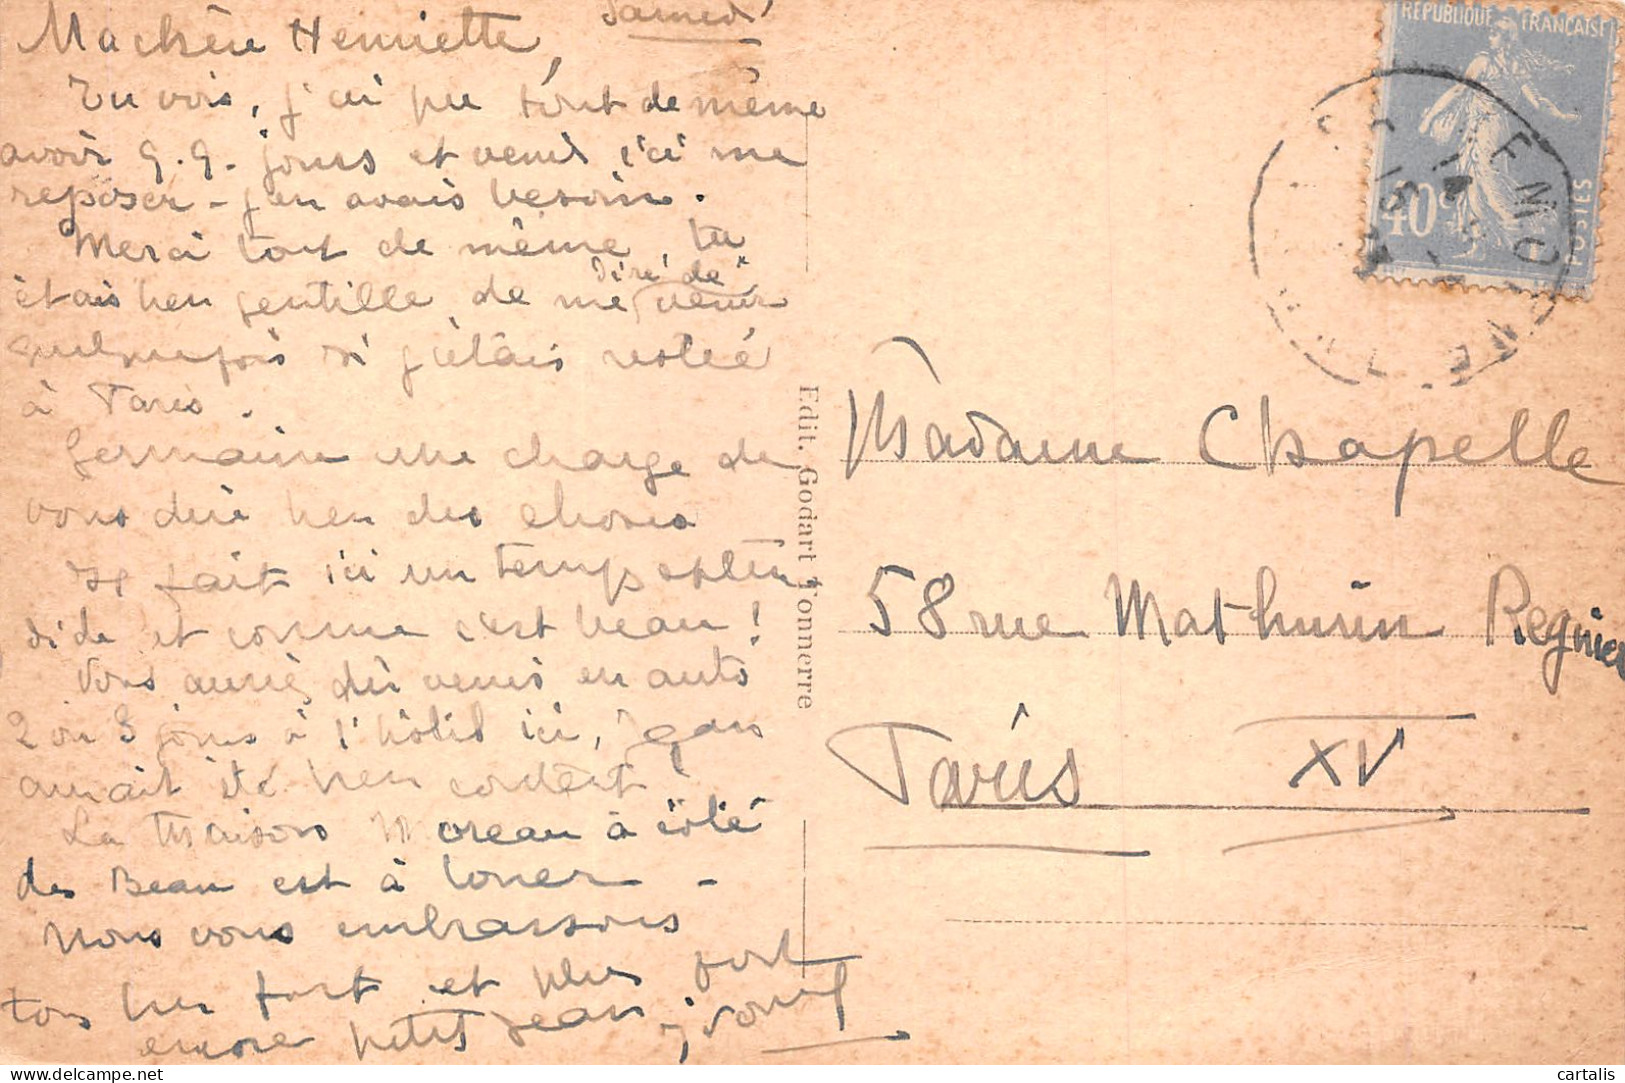 Samedi
Ma chère Henriette,
Tu vois, j'ai pu tout de même
avoir q.q. jours et venir ici me
reposer - j'en avais besoin.
Merci tout de même, tu
étais bien gentille de me dire de venir
quelquefois si j'étais restée
à Paris.
Germaine me charge de
vous dire bien des choses
Il fait ici un temps splen
dide et comme c'est beau!
Vous auriez dû venir en auto
2 ou 3 jours à l'hôtel ici, Jean
aurait été bien content
La Maison Moreau à côté
des Beau est à louer -
Nous vous embrassons
tous bien fort et plus fort
encore petit Jean
Edit. Godart Tonnerre
REPUBLIQUE FRANÇAISE
40c
POSTES
Madame Chapelle
58 rue Mathurin Regnier
Paris XV
cartalis
delcampe.net